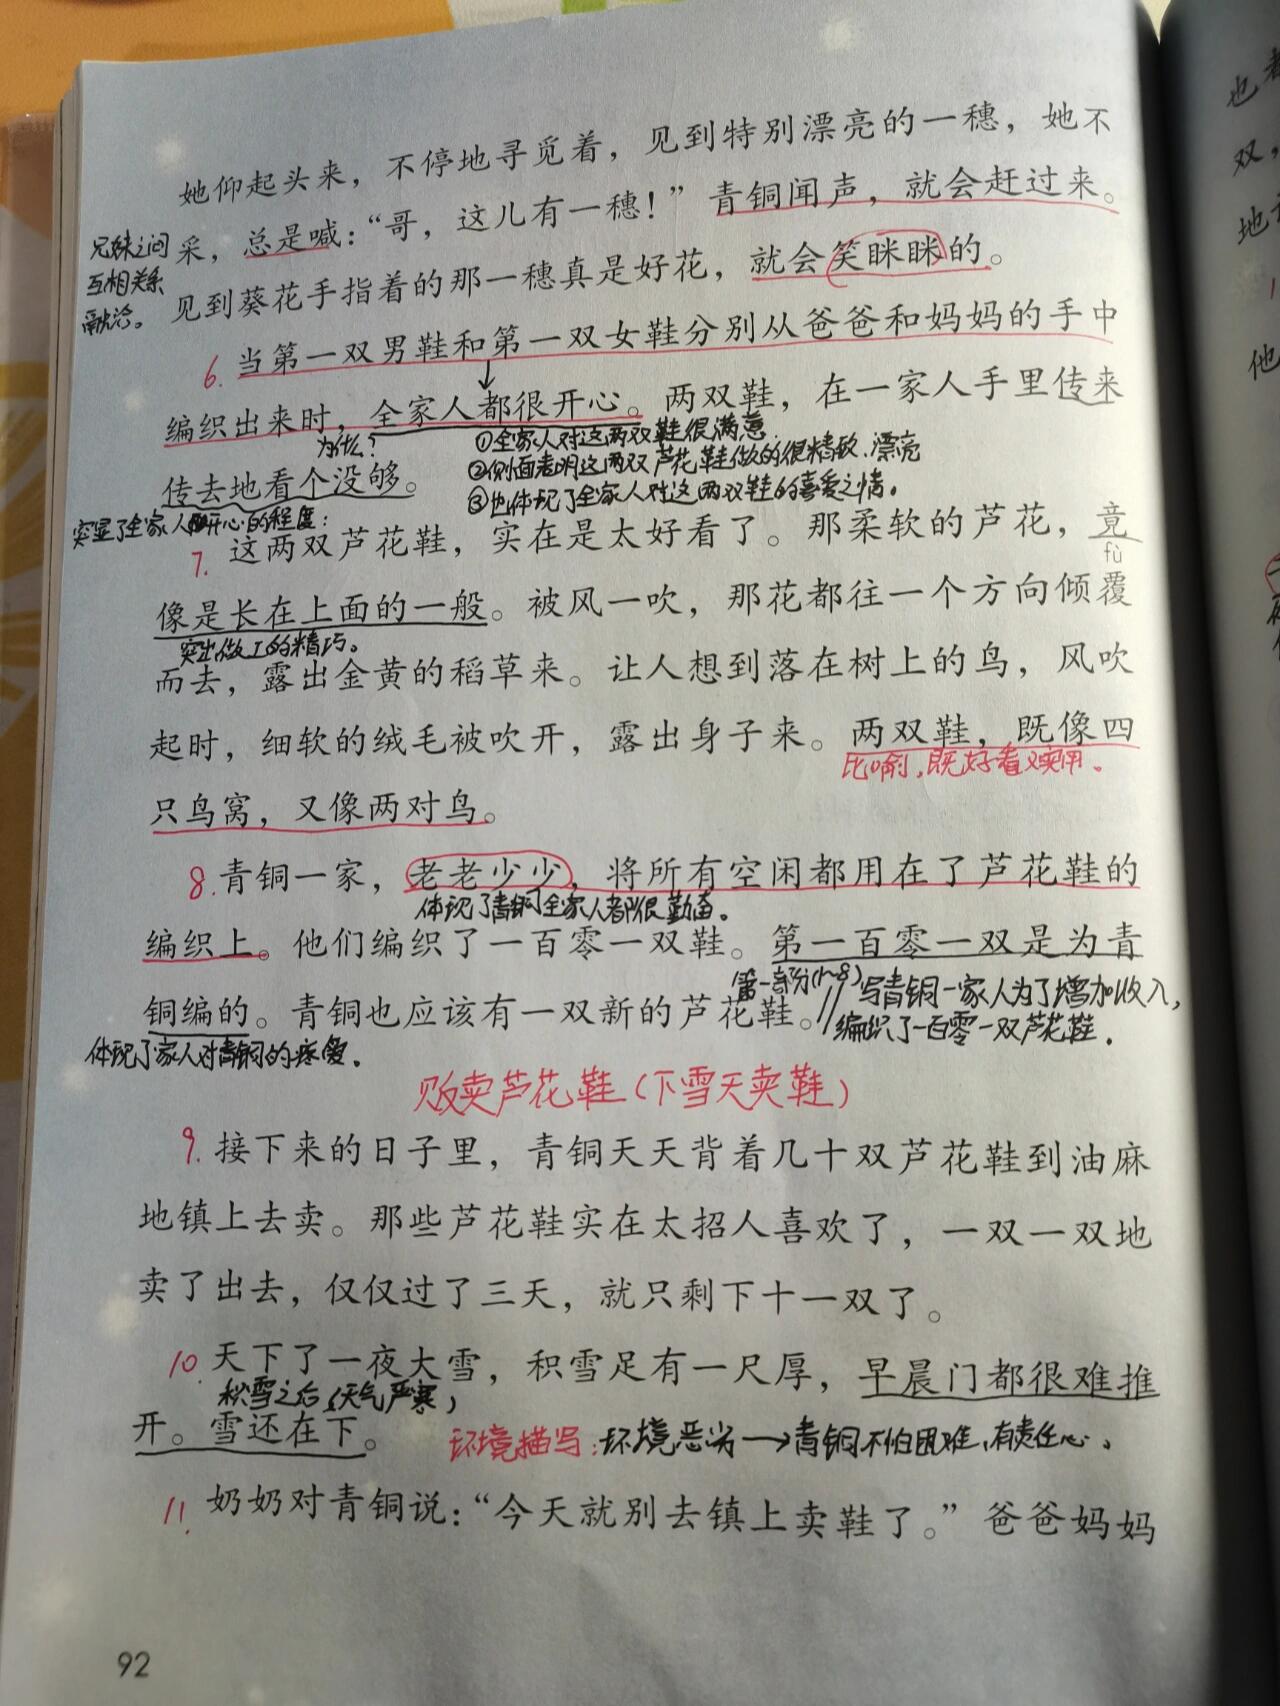 她仰起头来，不停地寻觅着，见到特别漂亮的一穗，她不
采，总是喊：“哥，这儿有一穗！”青铜闻声，就会赶过来。
兄妹之间
互相关系
融洽。
见到葵花手指着的那一穗真是好花，就会笑眯眯的。
6. 当第一双男鞋和第一双女鞋分别从爸爸和妈妈的手中
编织出来时，全家人都很开心。两双鞋，在一家人手里传来
为什么？
①全家人对这两双鞋很满意
②侧面表明这两双芦花鞋做的很精致、漂亮
③也体现了全家人对这两双鞋的喜爱之情。
传去地看个没够。
突显了全家人开心的程度：
7. 这两双芦花鞋，实在是太好看了。那柔软的芦花，竟
fù
像是长在上面的一般。被风一吹，那花都往一个方向倾覆
突出做工的精巧。
而去，露出金黄的稻草来。让人想到落在树上的鸟，风吹
起时，细软的绒毛被吹开，露出身子来。两双鞋，既像四
比喻，既好看又实用。
只鸟窝，又像两对鸟。
8. 青铜一家，老老少少，将所有空闲都用在了芦花鞋的
体现了青铜全家人都很勤奋。
编织上。他们编织了一百零一双鞋。第一百零一双是为青
铜编的。青铜也应该有一双新的芦花鞋。//
第一部分(1~8)
写青铜一家人为了增加收入，
编织了一百零一双芦花鞋．
体现了家人对青铜的疼爱．
贩卖芦花鞋（下雪天卖鞋）
9. 接下来的日子里，青铜天天背着几十双芦花鞋到油麻
地镇上去卖。那些芦花鞋实在太招人喜欢了，一双一双地
卖了出去，仅仅过了三天，就只剩下十一双了。
10. 天下了一夜大雪，积雪足有一尺厚，早晨门都很难推
积雪之后（天气严寒）
开。雪还在下。
环境描写：环境恶劣→青铜不怕困难，有责任心、
11. 奶奶对青铜说：“今天就别去镇上卖鞋了。”爸爸妈妈
92
也
双，
地
他